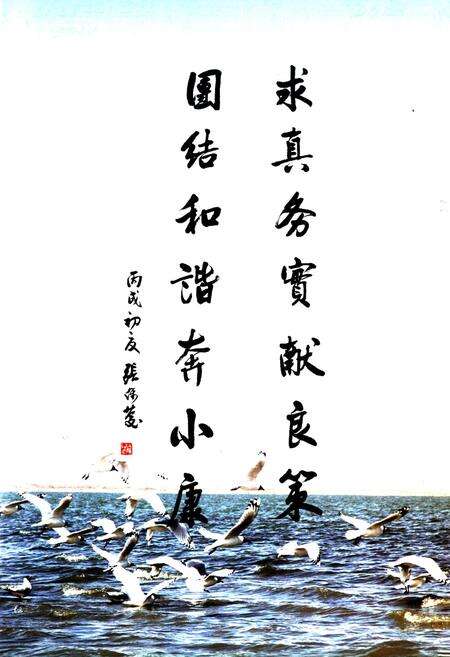 求真务實献良策
團结和谐奔小康
丙戌初夏 张